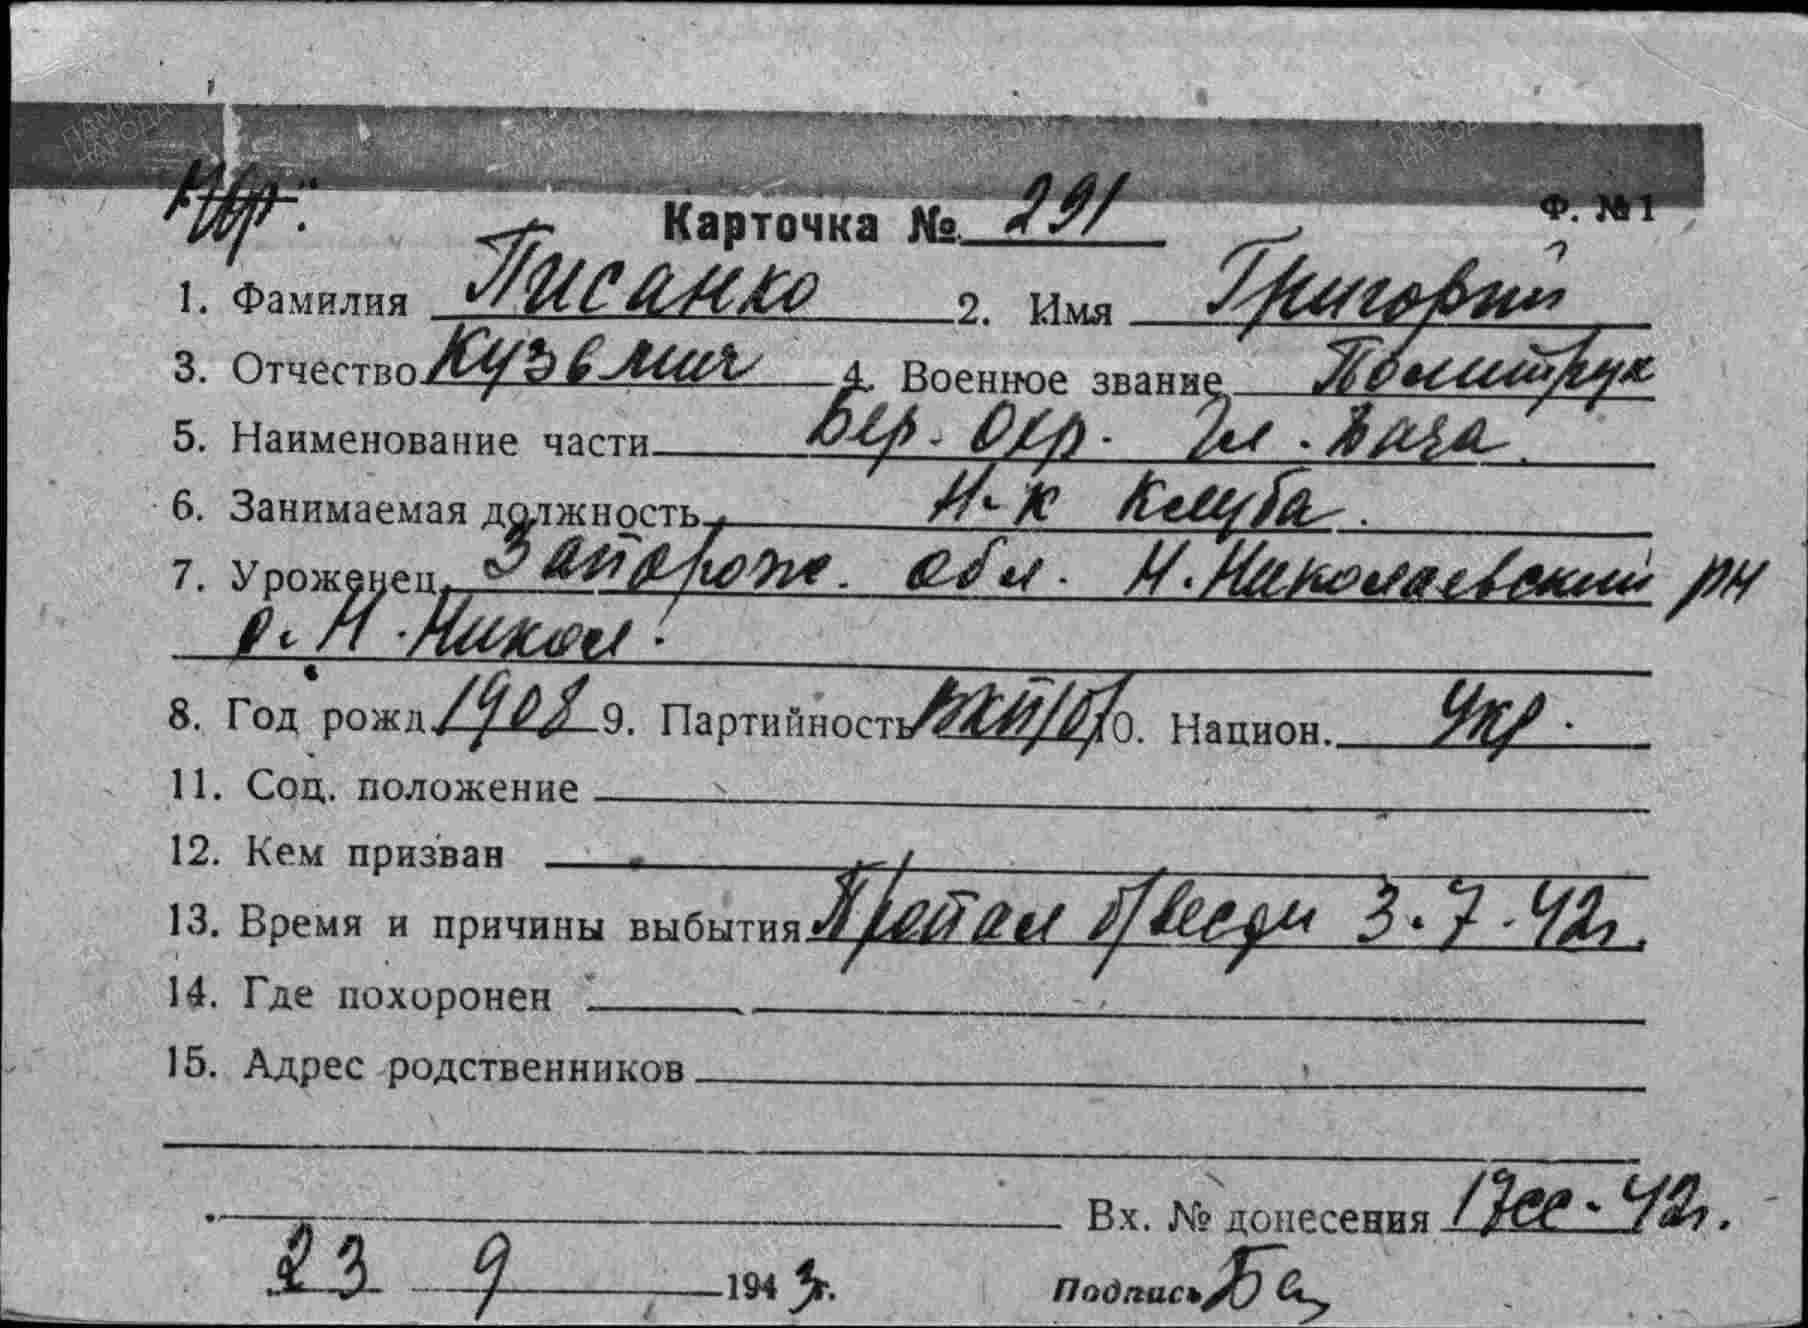 Ф. №1
Карточка № 291
1. Фамилия Писанко 2. Имя Григорий
3. Отчество Кузьмич 4. Военное звание Политрук
5. Наименование части Бер. Обр. Гл. База
6. Занимаемая должность Н-к Клуба.
7. Уроженец Запорож. обл. Н. Николаевский рн
с. Н. Никол.
8. Год рожд. 1908 9. Партийность ВКП/б/ 10. Национ. Укр.
11. Соц. положение
12. Кем призван
13. Время и причины выбытия Пропал б/вести 3.7.42г.
14. Где похоронен
15. Адрес родственников
Вх. № донесения 17сс-42г.
23 9 1943г. Подпись